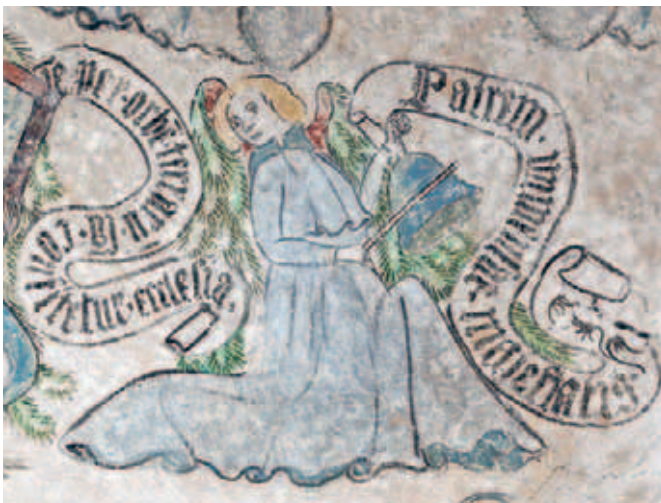 te · per · orbē · terra
rum · sca · con
fitetur · ecclesia ·
Patrem · immense · maiestatis